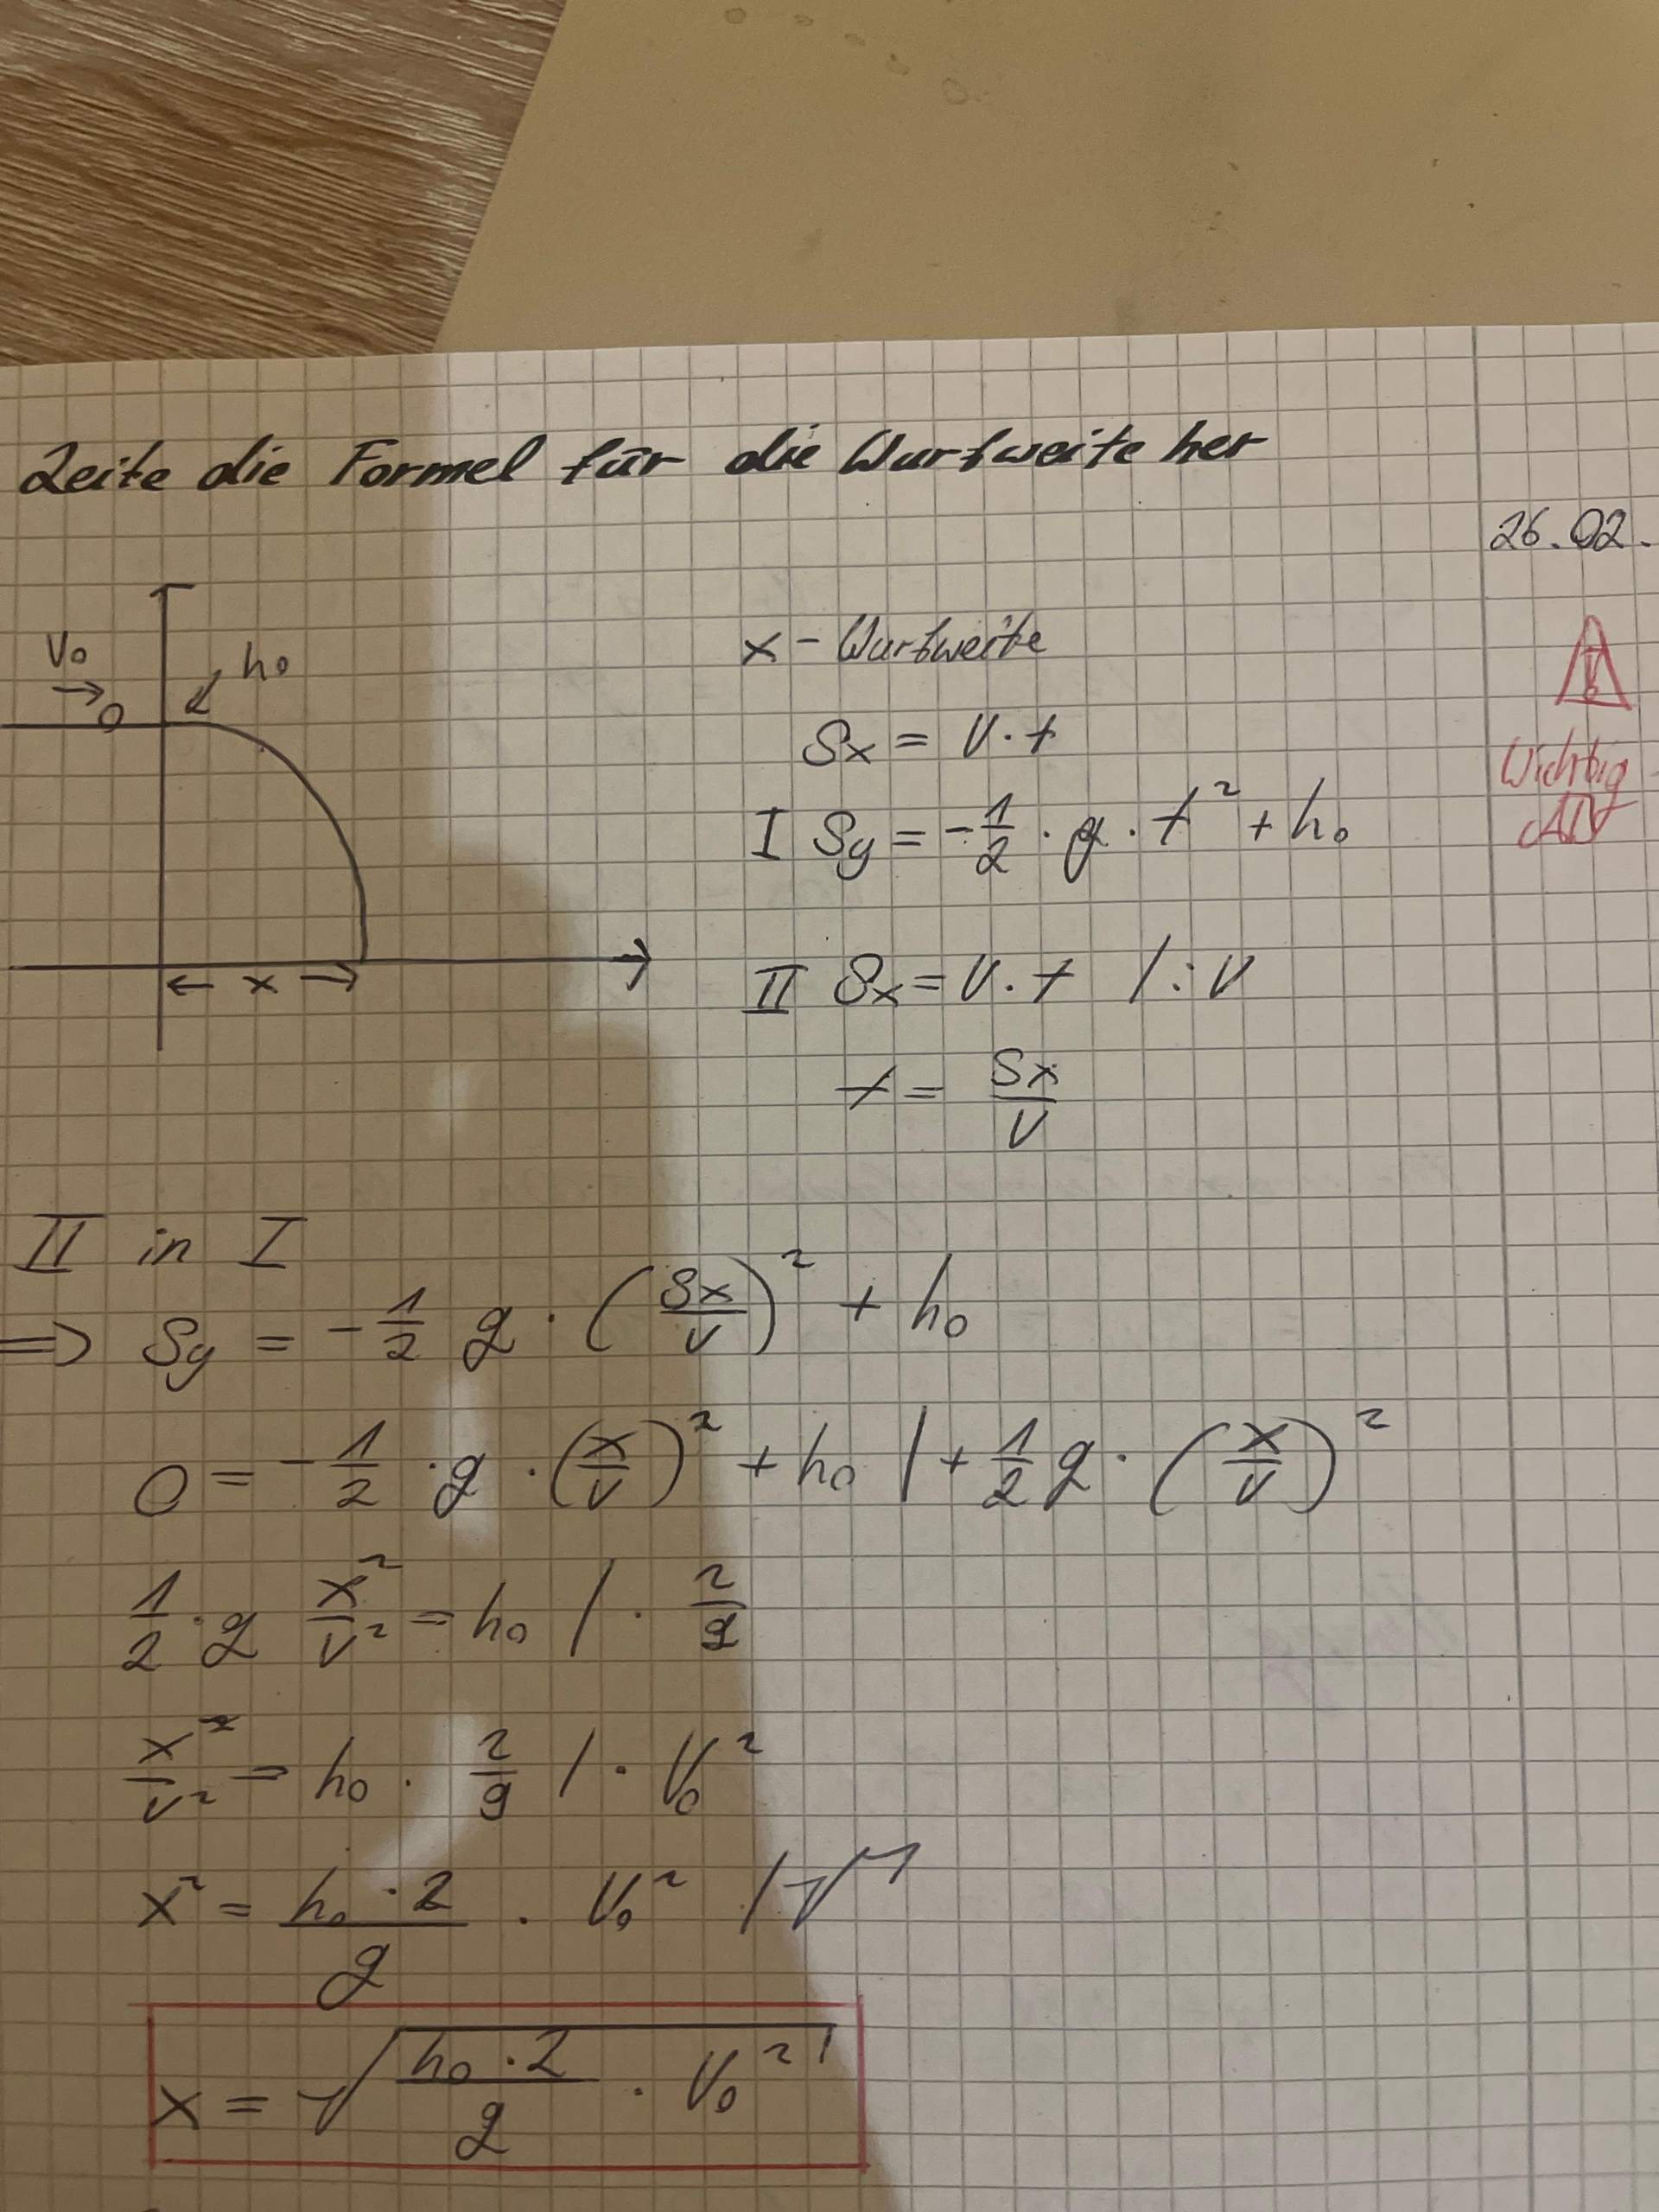 Leite die Formel für die Wurfweite her
26.02.
V₀
→
h₀
x - Wurfweite
Sx = V · t
Wichtig
I Sy = -1/2 · g · t² + h₀
← x →
II Sx = V · t | : V
t = Sx/V
II in I
=> Sy = -1/2 g · (Sx/V)² + h₀
0 = -1/2 · g · (x/V)² + h₀ | + 1/2 g · (x/V)²
1/2 · g x²/V² = h₀ | · 2/g
x²/V² = h₀ · 2/g | · V₀²
x² = h₀ · 2/g · V₀² | √
x = √(h₀ · 2/g · V₀²)